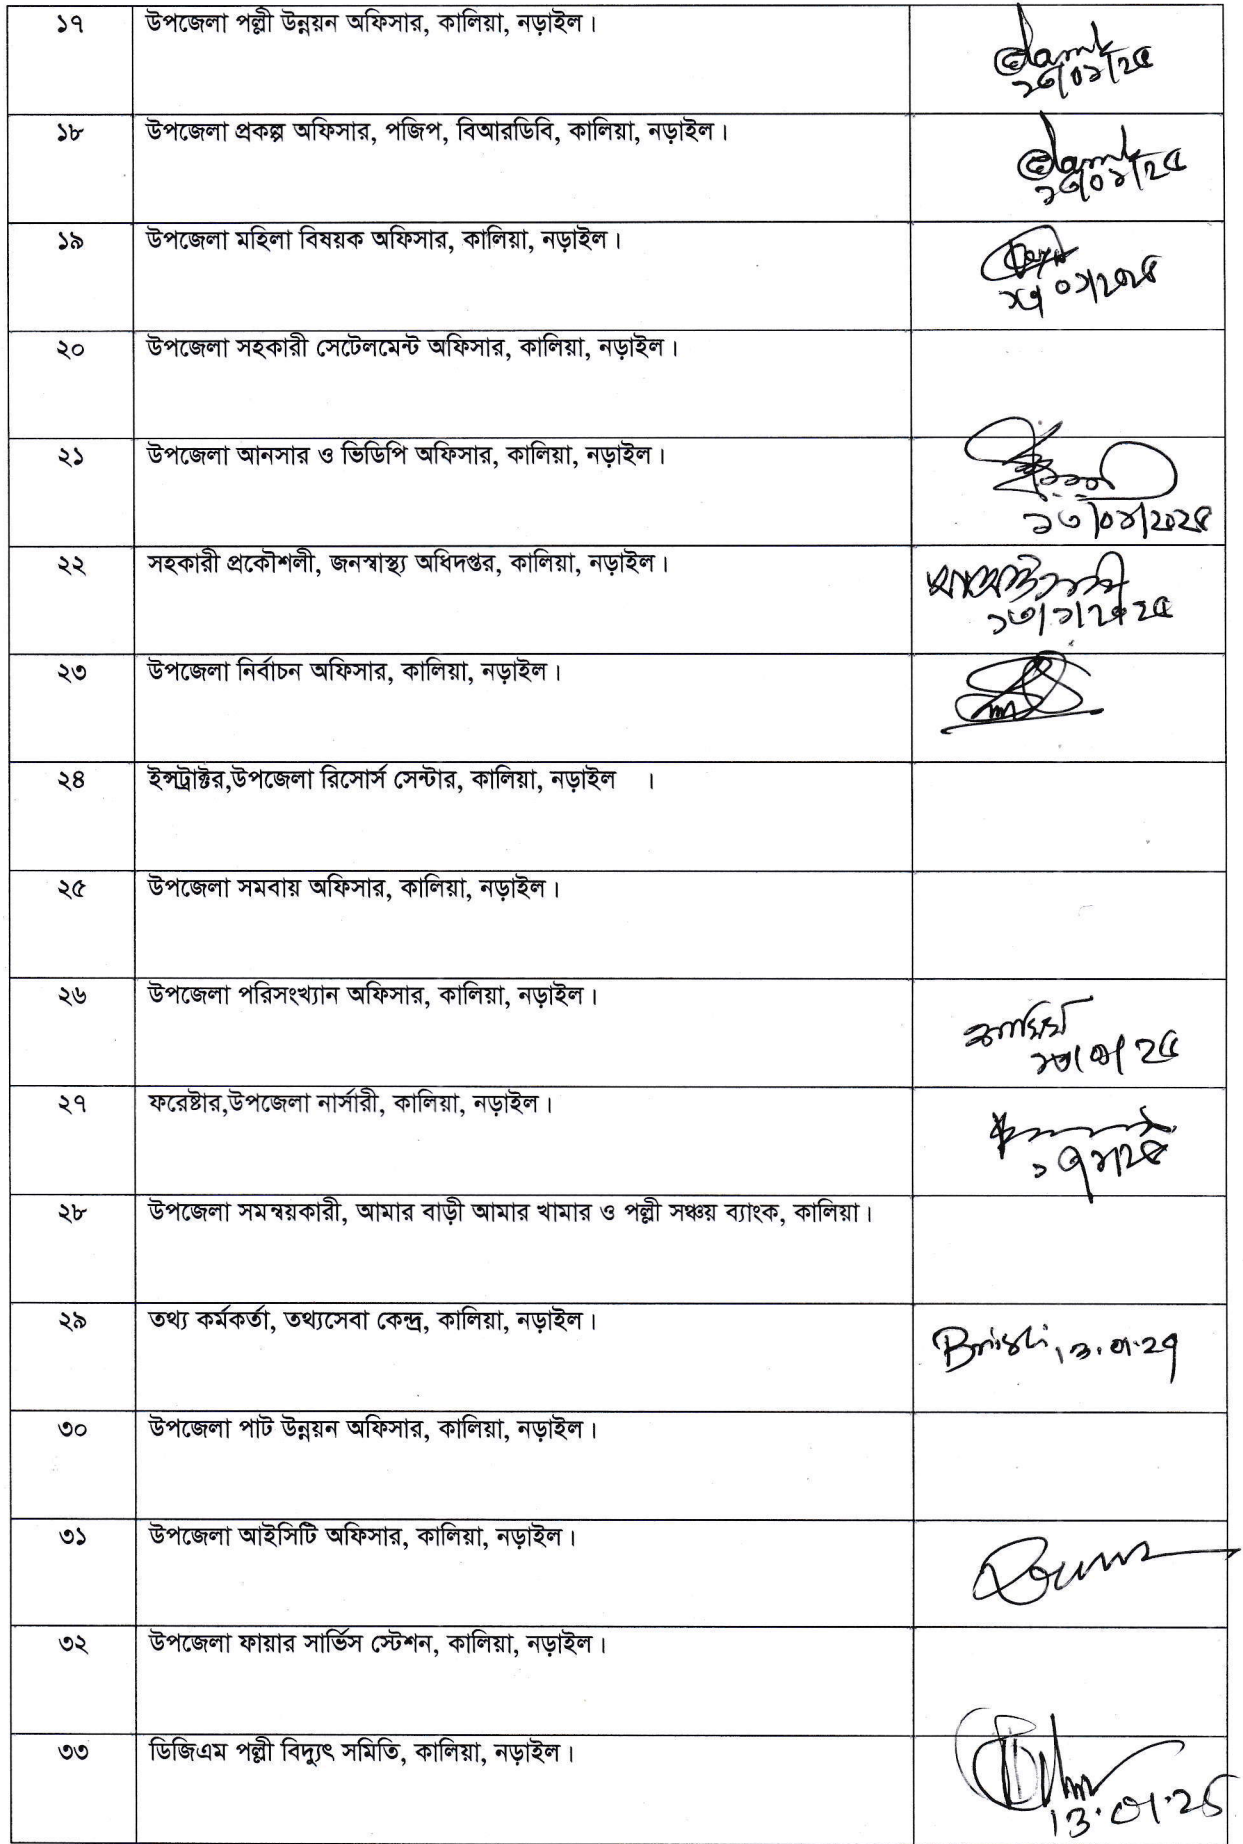 ১৭ উপজেলা পল্লী উন্নয়ন অফিসার, কালিয়া, নড়াইল।
১৩/০১/২৫
১৮ উপজেলা প্রকল্প অফিসার, পজিপ, বিআরডিবি, কালিয়া, নড়াইল।
১৩/০১/২৫
১৯ উপজেলা মহিলা বিষয়ক অফিসার, কালিয়া, নড়াইল।
২০ উপজেলা সহকারী সেটেলমেন্ট অফিসার, কালিয়া, নড়াইল।
২১ উপজেলা আনসার ও ভিডিপি অফিসার, কালিয়া, নড়াইল।
১৩/০১/২০২৫
২২ সহকারী প্রকৌশলী, জনস্বাস্থ্য অধিদপ্তর, কালিয়া, নড়াইল।
১৩/১/২০২৫
২৩ উপজেলা নির্বাচন অফিসার, কালিয়া, নড়াইল।
২৪ ইন্সট্রাক্টর,উপজেলা রিসোর্স সেন্টার, কালিয়া, নড়াইল ।
২৫ উপজেলা সমবায় অফিসার, কালিয়া, নড়াইল।
২৬ উপজেলা পরিসংখ্যান অফিসার, কালিয়া, নড়াইল।
২৭ ফরেষ্টার,উপজেলা নার্সারী, কালিয়া, নড়াইল।
২৮ উপজেলা সমন্বয়কারী, আমার বাড়ী আমার খামার ও পল্লী সঞ্চয় ব্যাংক, কালিয়া।
২৯ তথ্য কর্মকর্তা, তথ্যসেবা কেন্দ্র, কালিয়া, নড়াইল।
৩০ উপজেলা পাট উন্নয়ন অফিসার, কালিয়া, নড়াইল।
৩১ উপজেলা আইসিটি অফিসার, কালিয়া, নড়াইল।
৩২ উপজেলা ফায়ার সার্ভিস স্টেশন, কালিয়া, নড়াইল।
৩৩ ডিজিএম পল্লী বিদ্যুৎ সমিতি, কালিয়া, নড়াইল।
13.01.25